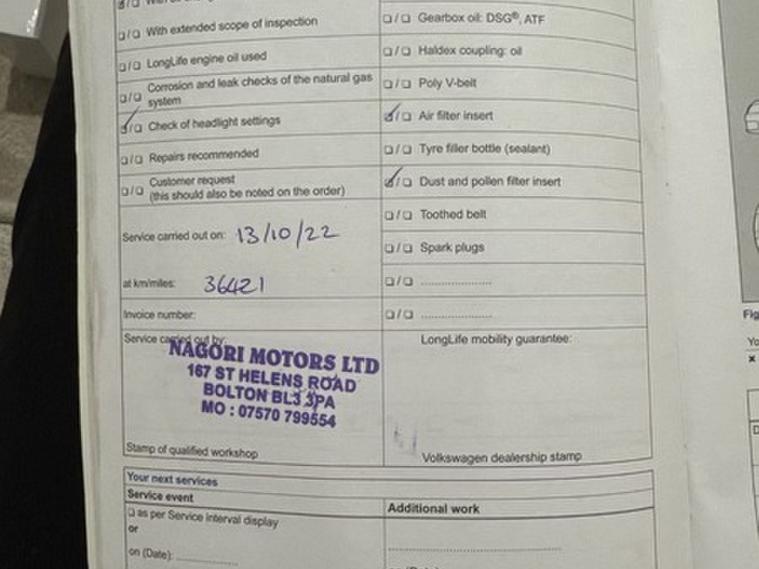 With extended scope of inspection
LongLife engine oil used
Corrosion and leak checks of the natural gas
system
Check of headlight settings
Repairs recommended
Customer request
(this should also be noted on the order)
Service carried out on: 13/10/22
at km/miles: 36421
Invoice number:
Service carried out by:
NAGORI MOTORS LTD
167 ST HELENS ROAD
BOLTON BL3 3PA
MO : 07570 799554
Stamp of qualified workshop
Gearbox oil: DSG®, ATF
Haldex coupling: oil
Poly V-belt
Air filter insert
Tyre filler bottle (sealant)
Dust and pollen filter insert
Toothed belt
Spark plugs
LongLife mobility guarantee:
Volkswagen dealership stamp
Your next services
Service event
as per Service interval display
or
on (Date):
Additional work
Fig